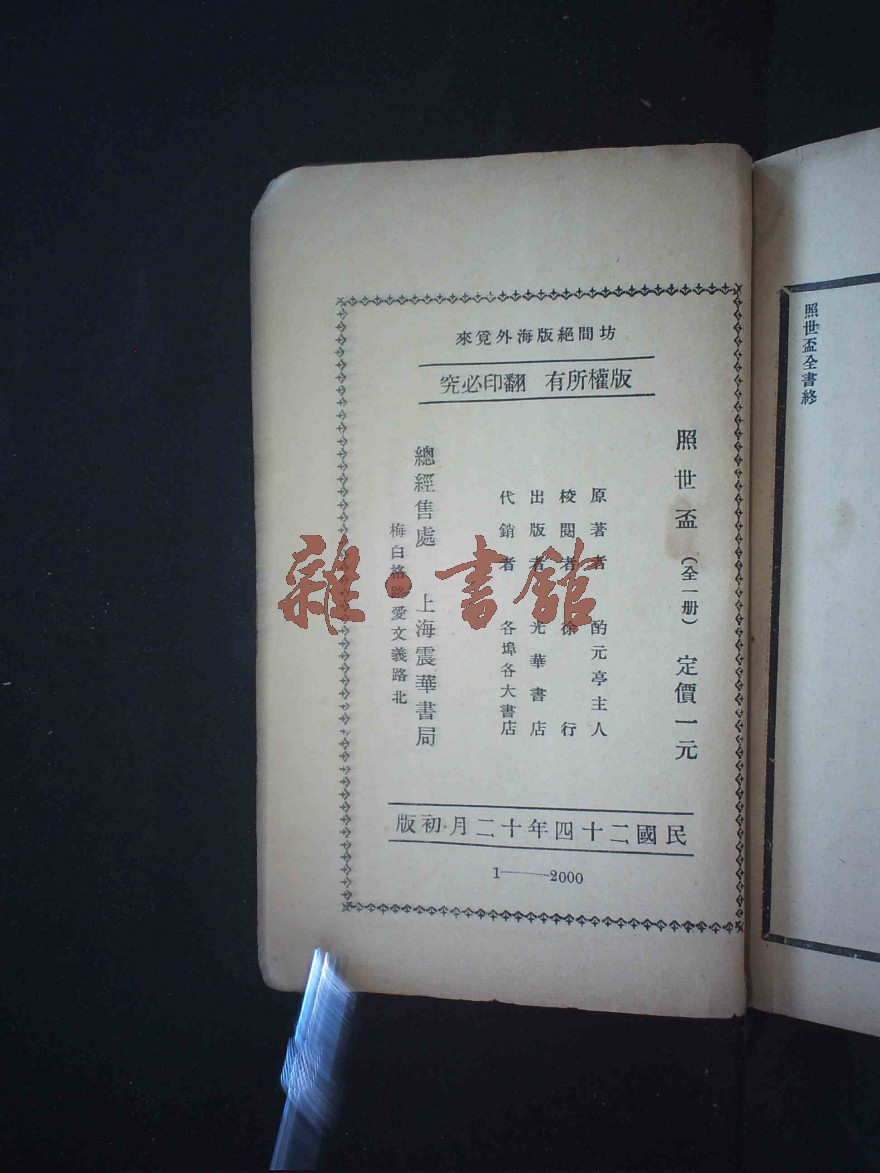 照世盃全書終
坊間絕版海外覓來
版權所有 翻印必究
照世盃（全一册）定價一元
原著者 酌元亭主人
校閱者 徐行
出版者 光華書店
代銷者 各埠各大書店
總經售處 上海震華書局
梅白格路愛文義路北
民國二十四年十二月·初版
1┈┈2000
雜·書館